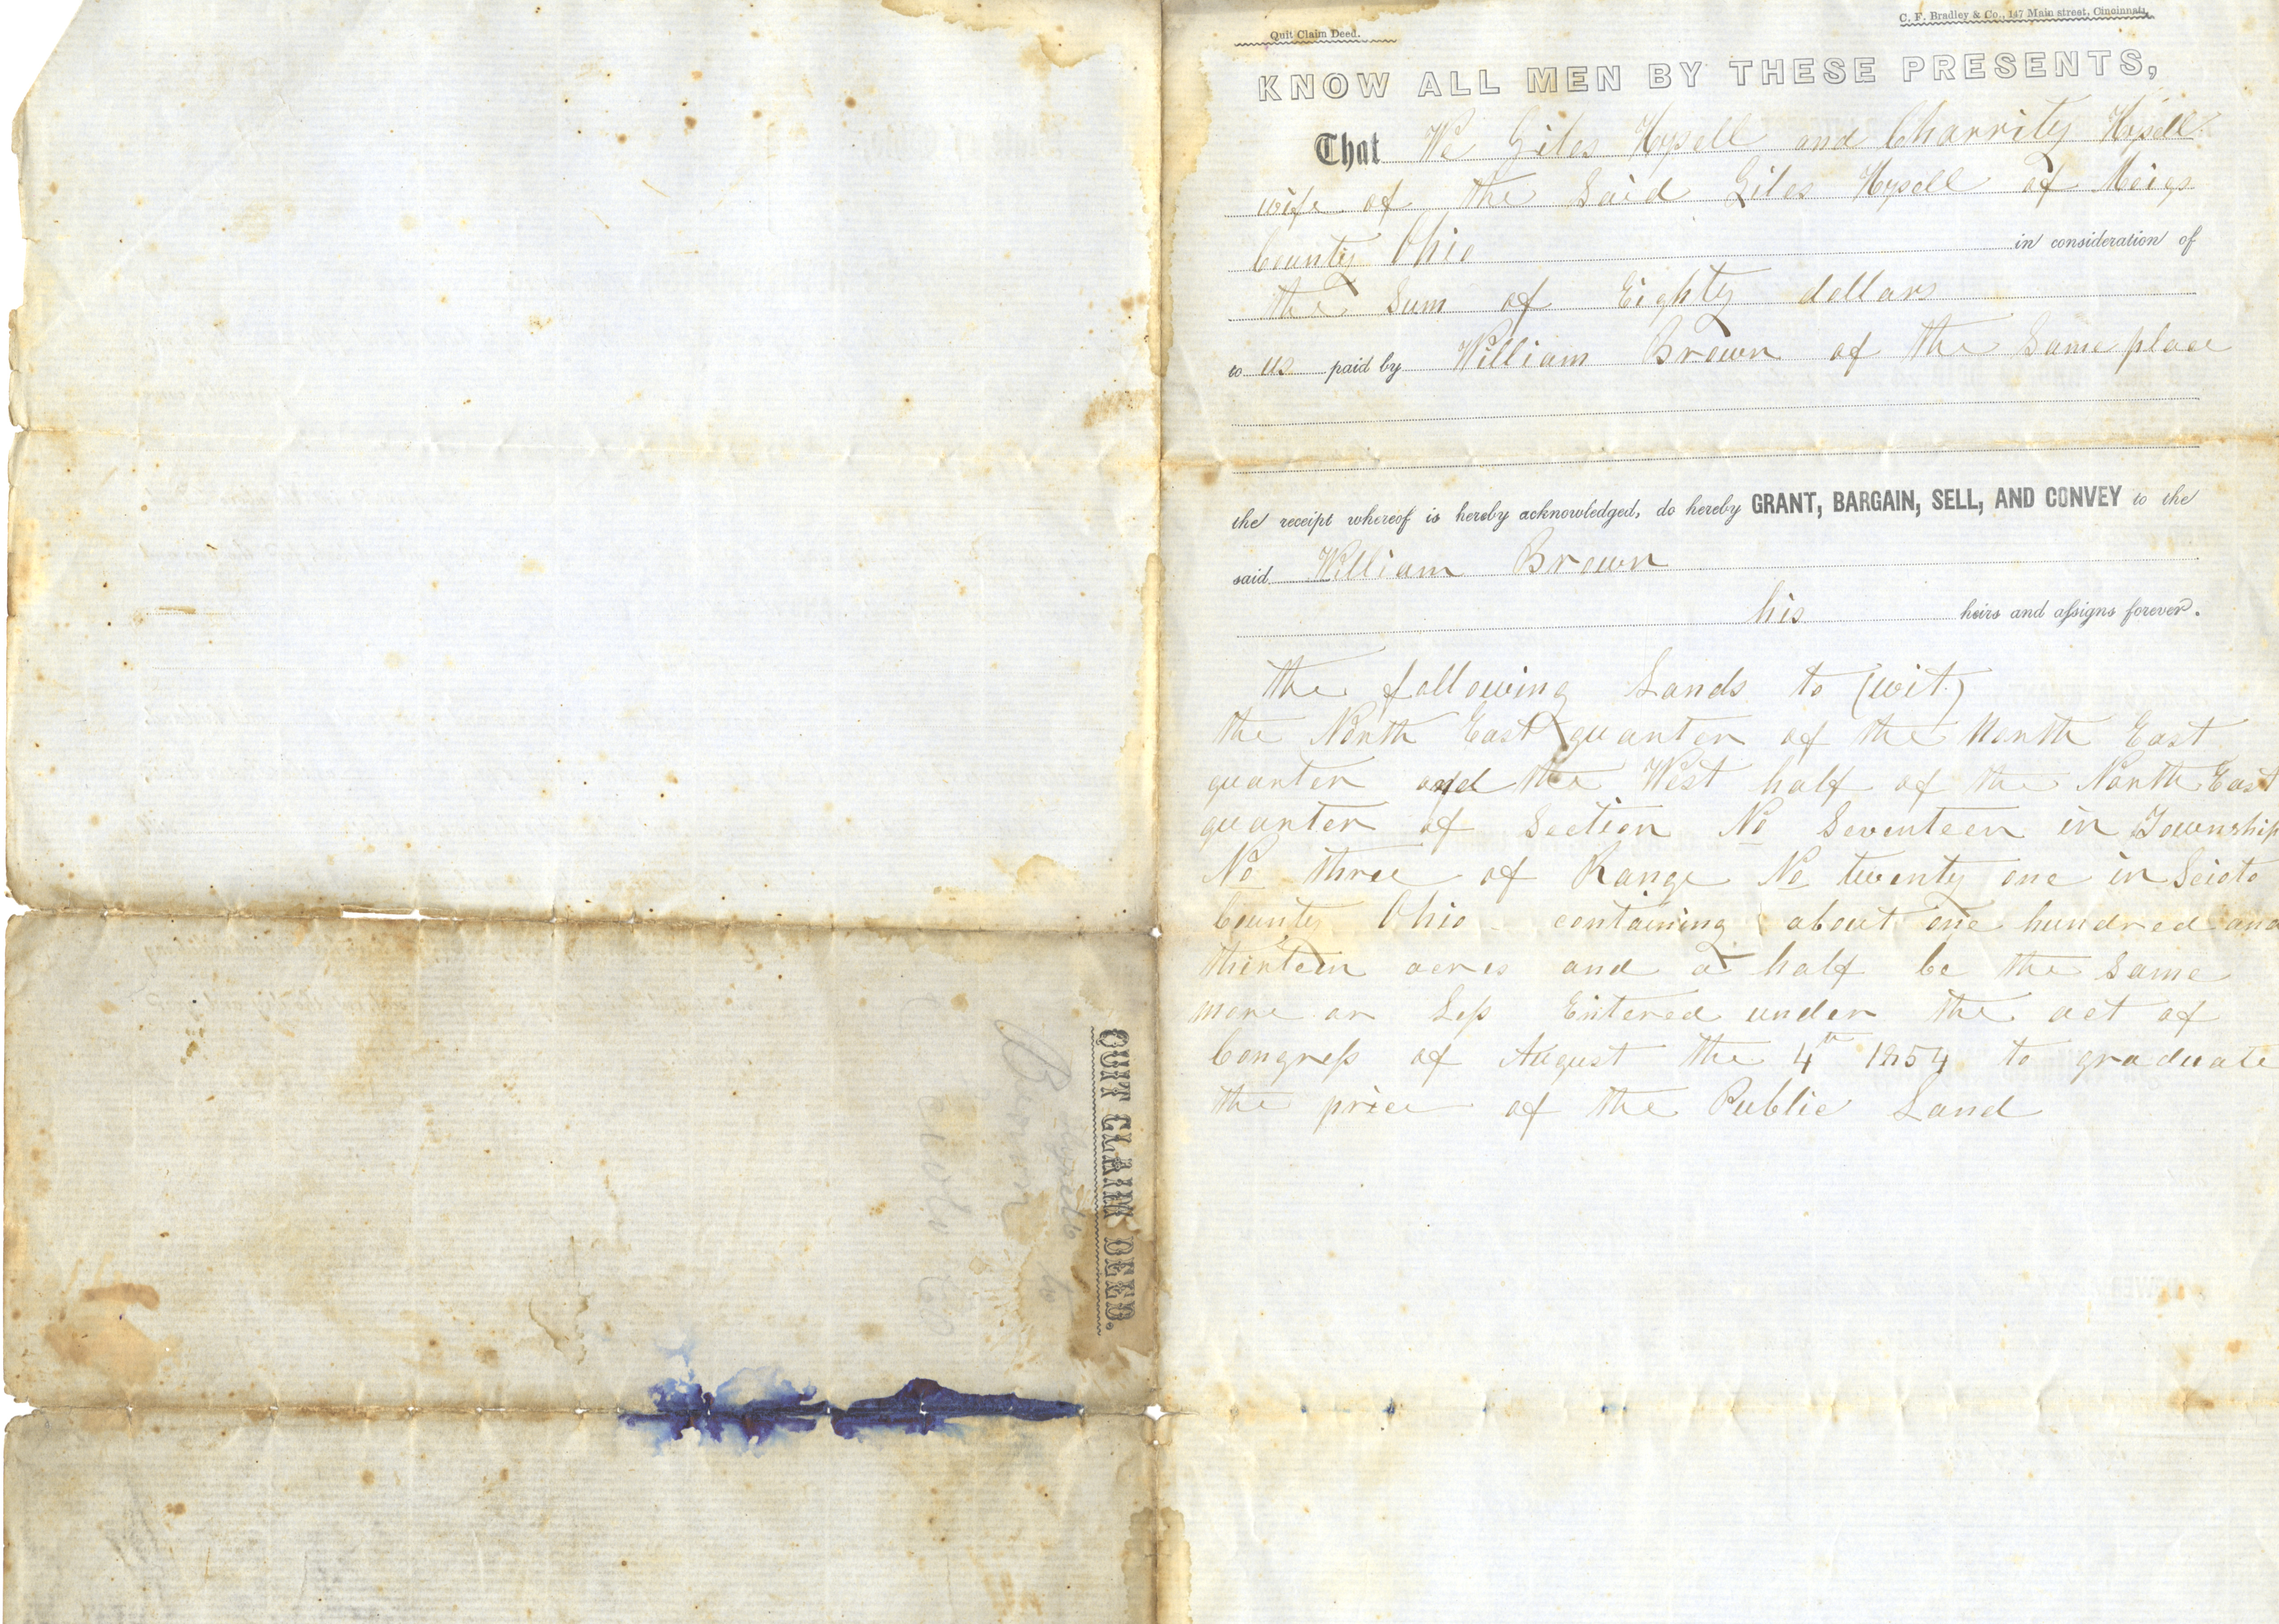 Quit Claim Deed.
C. F. Bradley & Co., 147 Main street, Cincinnati,
KNOW ALL MEN BY THESE PRESENTS,
That We Giles Hysell and Charrity Hysell
wife of the Said Giles Hysell of Meigs
County Ohio in consideration of
the Sum of Eighty dollars
to us paid by William Brown of the Same place
the receipt whereof is hereby acknowledged, do hereby GRANT, BARGAIN, SELL, AND CONVEY to the
said William Brown
his heirs and aſsigns forever.
the following Lands to (wit)
the North East quarter of the North East
quarter and the West half of the North East
quarter of Section No Seventeen in Township
No three of Range No twenty one in Scioto
County Ohio containing about one hundred and
thirteen acres and a half be the Same
more or Leſs Entered under the act of
Congreſs of August the 4th 1854 to graduate
the price of the Public Land
QUIT CLAIM DEED.
to
Brown